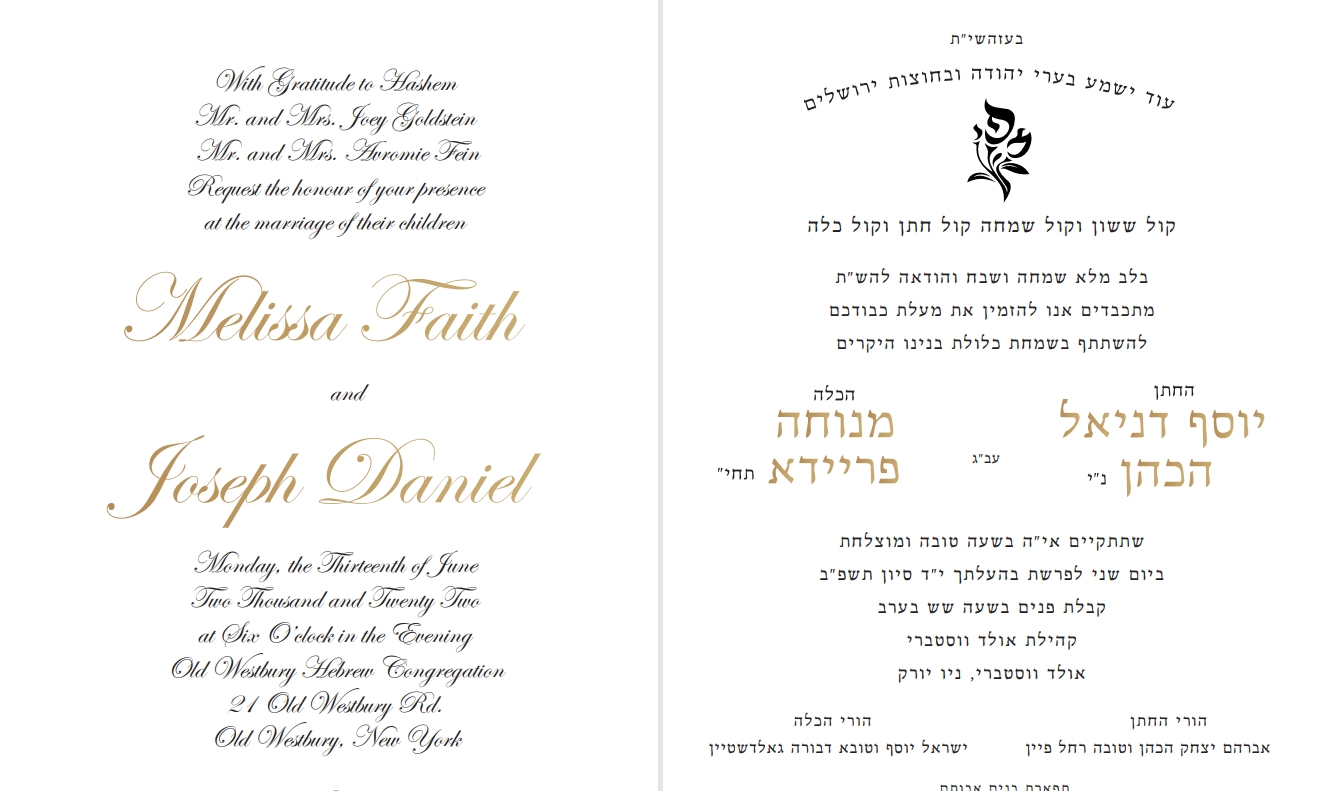 With Gratitude to Hashem
Mr. and Mrs. Joey Goldstein
Mr. and Mrs. Avromie Fein
Request the honour of your presence
at the marriage of their children
Melissa Faith
and
Joseph Daniel
Monday, the Thirteenth of June
Two Thousand and Twenty Two
at Six O'clock in the Evening
Old Westbury Hebrew Congregation
21 Old Westbury Rd.
Old Westbury, New York
בעזהשי"ת
עוד ישמע בערי יהודה ובחוצות ירושלים
קול ששון וקול שמחה קול חתן וקול כלה
בלב מלא שמחה ושבח והודאה להש"ת
מתכבדים אנו להזמין את מעלת כבודכם
להשתתף בשמחת כלולת בנינו היקרים
החתן
יוסף דניאל
הכהן נ"י
עב"ג
הכלה
מנוחה
פריידא תחי"
שתתקיים אי"ה בשעה טובה ומוצלחת
ביום שני לפרשת בהעלתך י"ד סיון תשפ"ב
קבלת פנים בשעה שש בערב
קהילת אולד ווסטברי
אולד ווסטברי, ניו יורק
הורי החתן
אברהם יצחק הכהן וטובה רחל פיין
הורי הכלה
ישראל יוסף וטובא דבורה גאלדשטיין